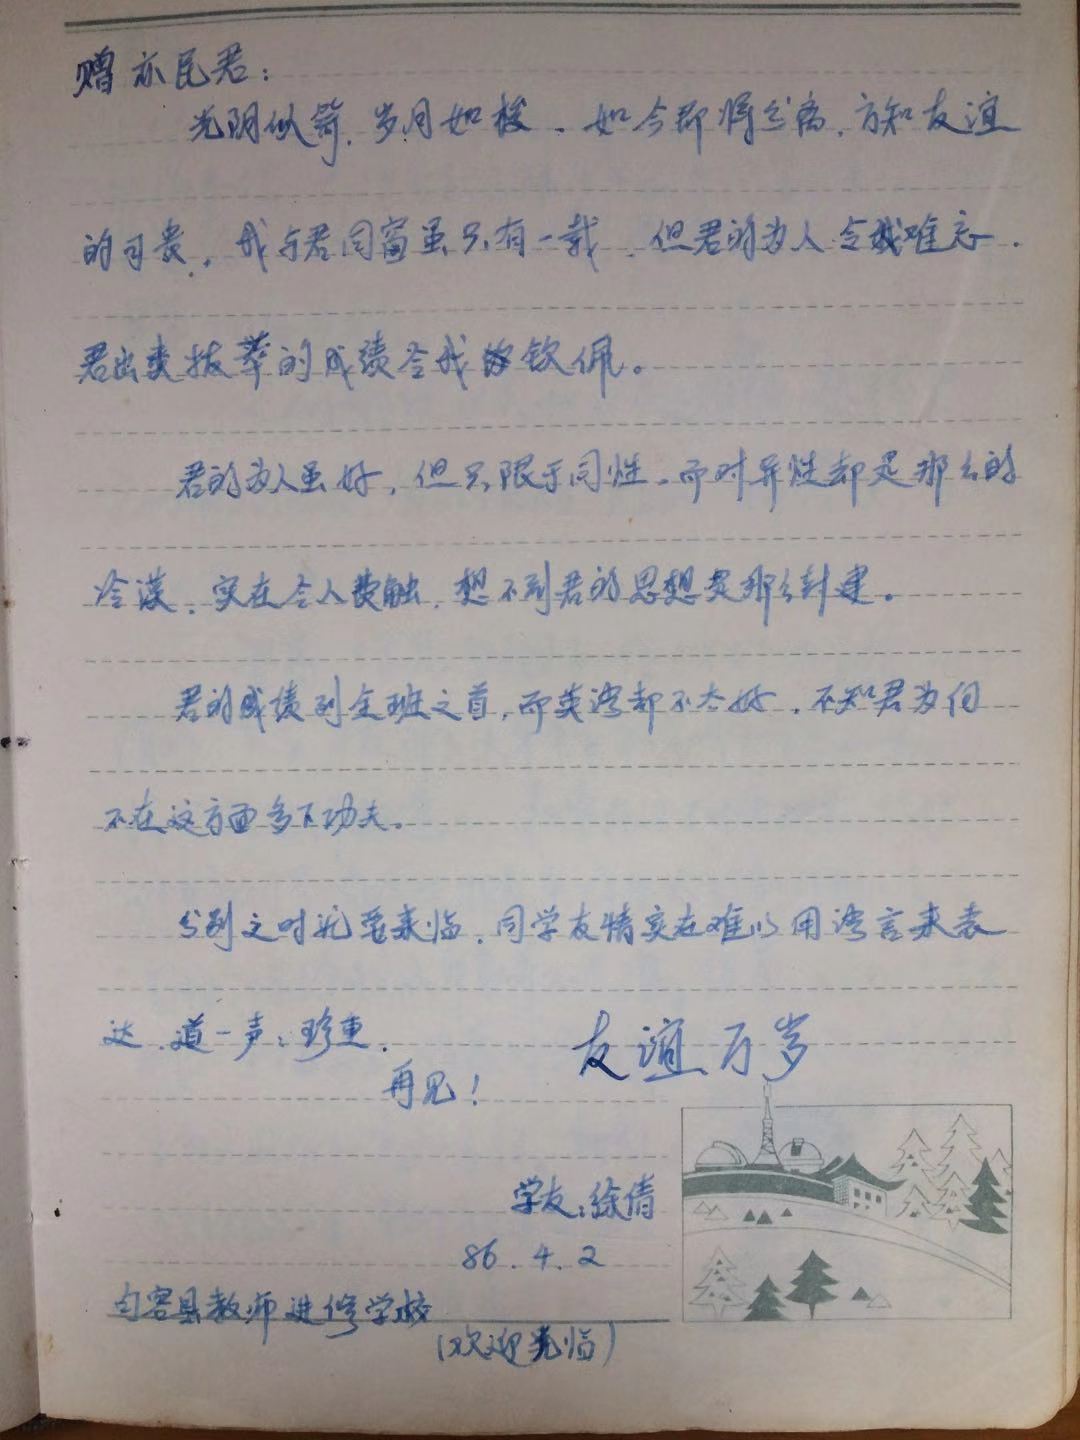 赠亦民君：
光阴似箭，岁月如梭，如今即将分离，方知友谊
的可贵，我与君同窗虽只有一载，但君的为人令我难忘，
君出类拔萃的成绩令我钦佩。
君的为人虽好，但只限于同性，而对异性却是那么的
冷漠，实在令人费触，想不到君的思想是那么封建。
君的成绩列全班之首，而英语却不太好，不知君为何
不在这方面多下功夫。
分别之时就要来临，同学友情实在难以用语言来表
达，道一声：珍重，
再见！
友谊万岁
学友：徐倩
86.4.2
句容县教师进修学校
（欢迎光临）